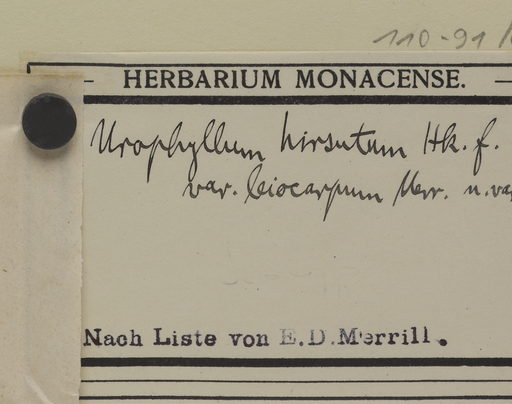 110-91/
HERBARIUM MONACENSE.
Urophyllum hirsutum Hk. f.
var. leiocarpum Merr. n. var
Nach Liste von E.D.Merrill.